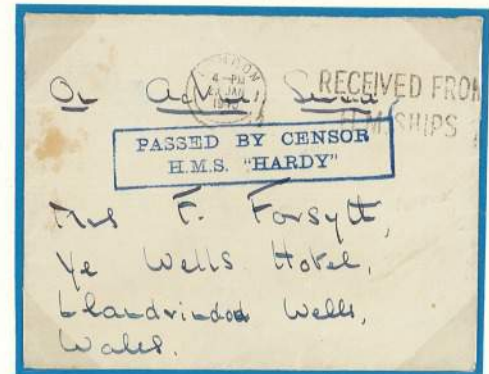 LONDON
4 - PM
27 JAN
RECEIVED FROM
H.M. SHIPS
On Active Service
PASSED BY CENSOR
H.M.S. "HARDY"
Mrs F. Forsyth,
Ye Wells Hotel,
Llandrindod Wells,
Wales.